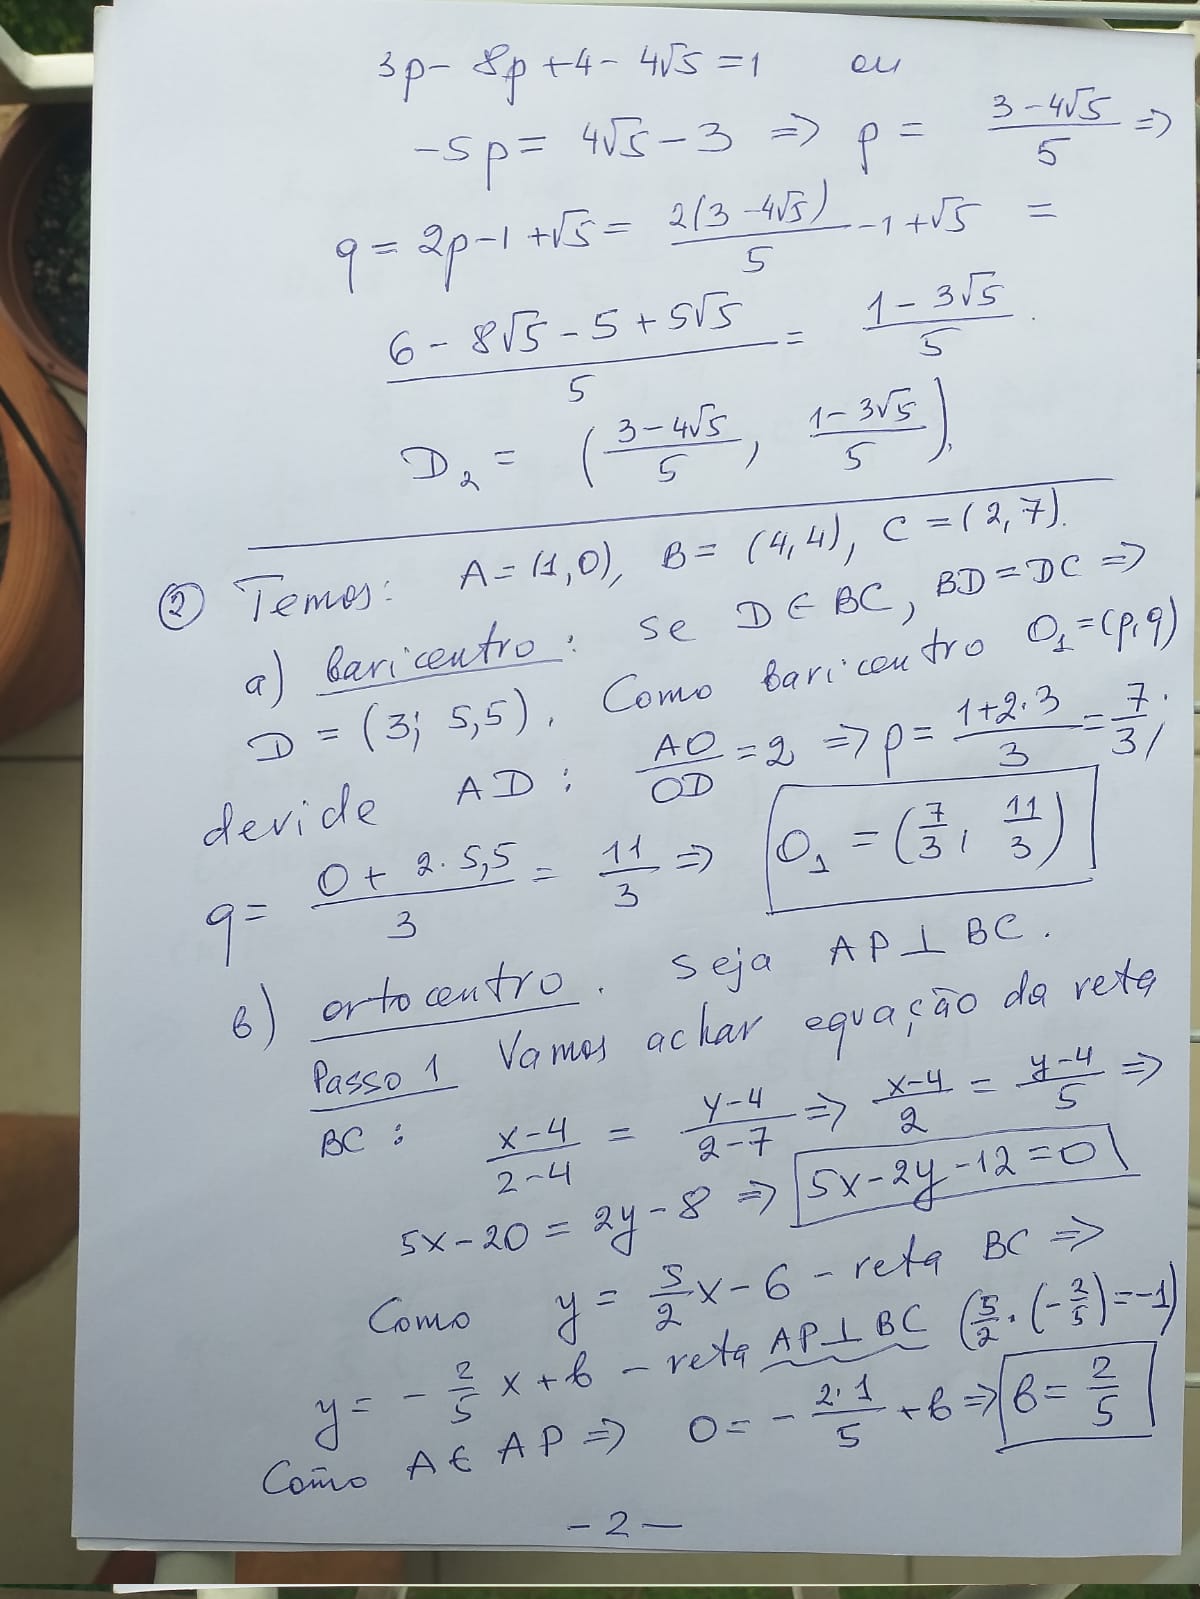 3p - 8p + 4 - 4√5 = 1 ou
-5p = 4√5 - 3 => p = (3 - 4√5)/5 =>
q = 2p - 1 + √5 = 2(3 - 4√5)/5 - 1 + √5 =
(6 - 8√5 - 5 + 5√5)/5 = (1 - 3√5)/5.
D₂ = ((3 - 4√5)/5, (1 - 3√5)/5).
② Temos: A = (1,0), B = (4,4), C = (2,7).
a) baricentro: se D ∈ BC, BD = DC =>
D = (3; 5,5). Como baricentro O₁ = (p,q)
devide AD: AO/OD = 2 => p = (1+2·3)/3 = 7/3,
q = (0 + 2·5,5)/3 = 11/3 => O₁ = (7/3, 11/3)
b) ortocentro. Seja AP ⊥ BC.
Passo 1 Vamos achar equação da reta
BC: (x-4)/(2-4) = (y-4)/(2-7) => (x-4)/2 = (y-4)/5 =>
5x - 20 = 2y - 8 => 5x - 2y - 12 = 0
Como y = 5/2 x - 6 - reta BC =>
y = - 2/5 x + b - reta AP ⊥ BC (5/2 · (-2/5) = -1)
Como A ∈ AP => 0 = - 2·1/5 + b => b = 2/5
- 2 -